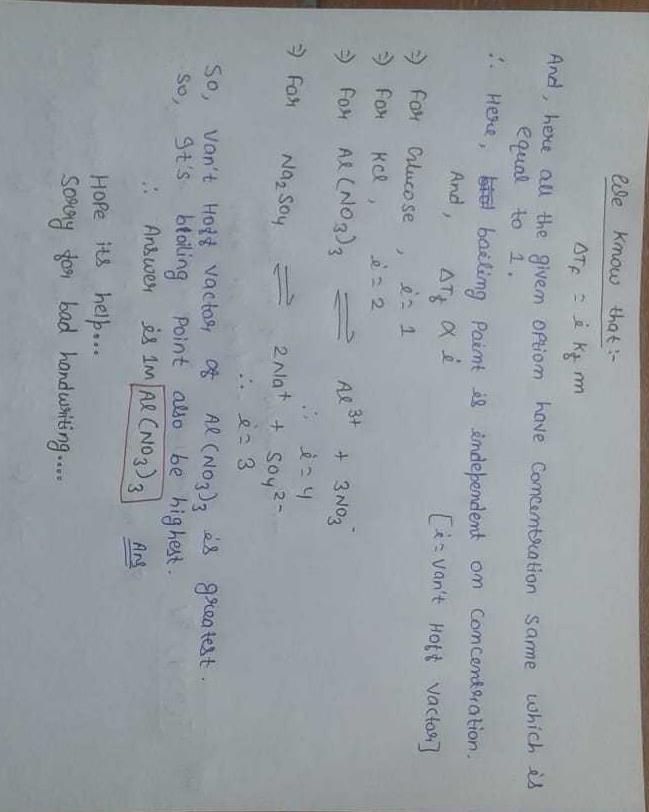 We know that :-
ΔTf = i kf m
And, here all the given option have concentration same which is
equal to 1.
∴ Here, boiling Point is independent on concentration.
And, ΔTf α i [i = van't Hoff vactor]
⇒ for Glucose, i = 1
⇒ for KCl, i = 2
⇒ for Al(NO3)3 ⇌ Al3+ + 3NO3-
∴ i = 4
⇒ for Na2SO4 ⇌ 2Na+ + SO4 2-
∴ i = 3
So, van't Hoff vactor of Al(NO3)3 is greatest.
So, It's bioling point also be highest.
∴ Answer is 1M Al(NO3)3 Ans
Hope its help...
Sorry for bad handwriting....